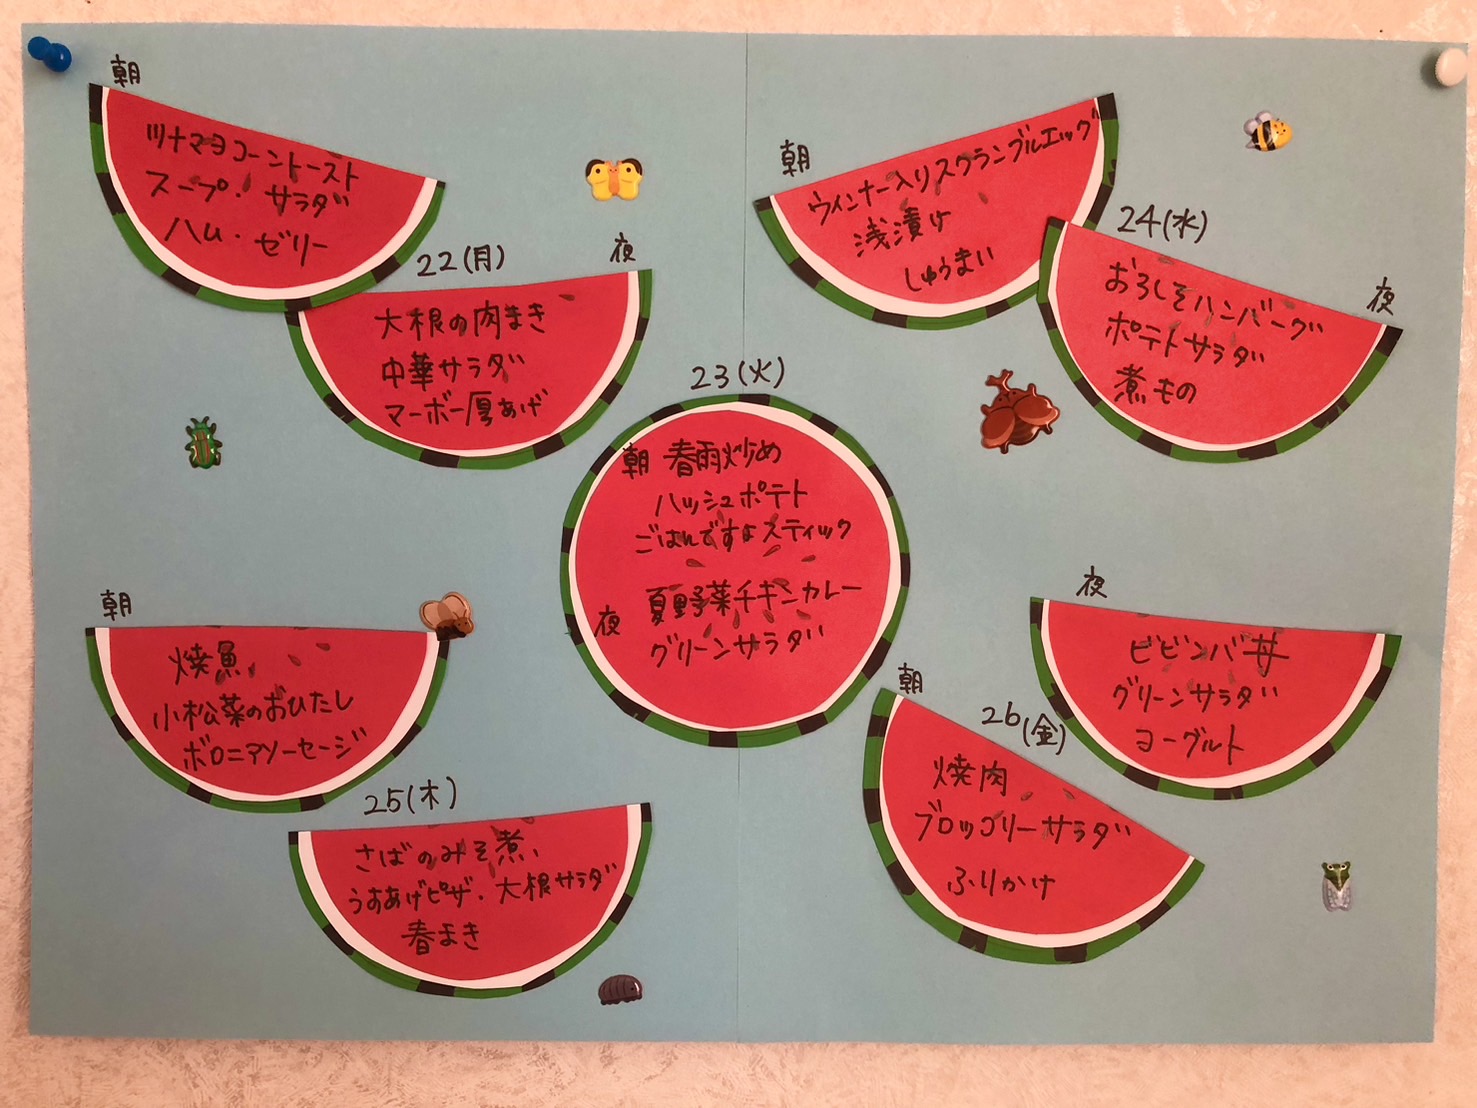 22(月)
朝
ツナマヨコーントースト
スープ・サラダ
ハム・ゼリー
夜
大根の肉まき
中華サラダ
マーボー厚あげ
23(火)
朝 春雨炒め
ハッシュポテト
ごはんですよスティック
夜 夏野菜チキンカレー
グリーンサラダ
24(水)
朝
ウインナー入りスクランブルエッグ
浅漬け
しゅうまい
夜
おろしそハンバーグ
ポテトサラダ
煮もの
25(木)
朝
焼魚
小松菜のおひたし
ボロニアソーセージ
さばのみそ煮
うすあげピザ・大根サラダ
春まき
26(金)
朝
焼肉
ブロッコリーサラダ
ふりかけ
夜
ビビンバ丼
グリーンサラダ
ヨーグルト